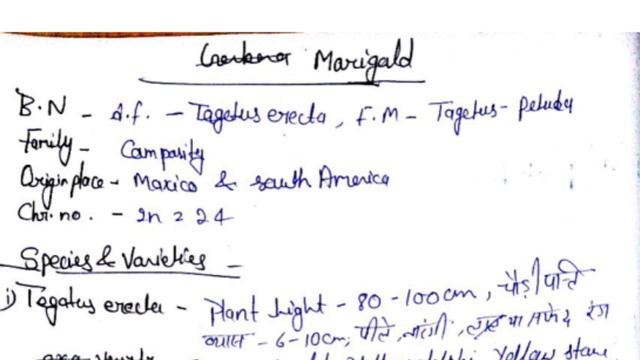 Marigald
B.N - A.f. - Tagetus erecta, F.M - Tagetus - petuda
Family - Camposity
Origin place - Maxico & south America
Chr. no. - 2n = 24
Species & Varieties -
i) Tagatus erecta - Plant hight - 80 - 100cm, चौड़ी पत्ति
व्यास - 6-10cm, पीले, नारंगी, या सफेद रंग
Yellow stare